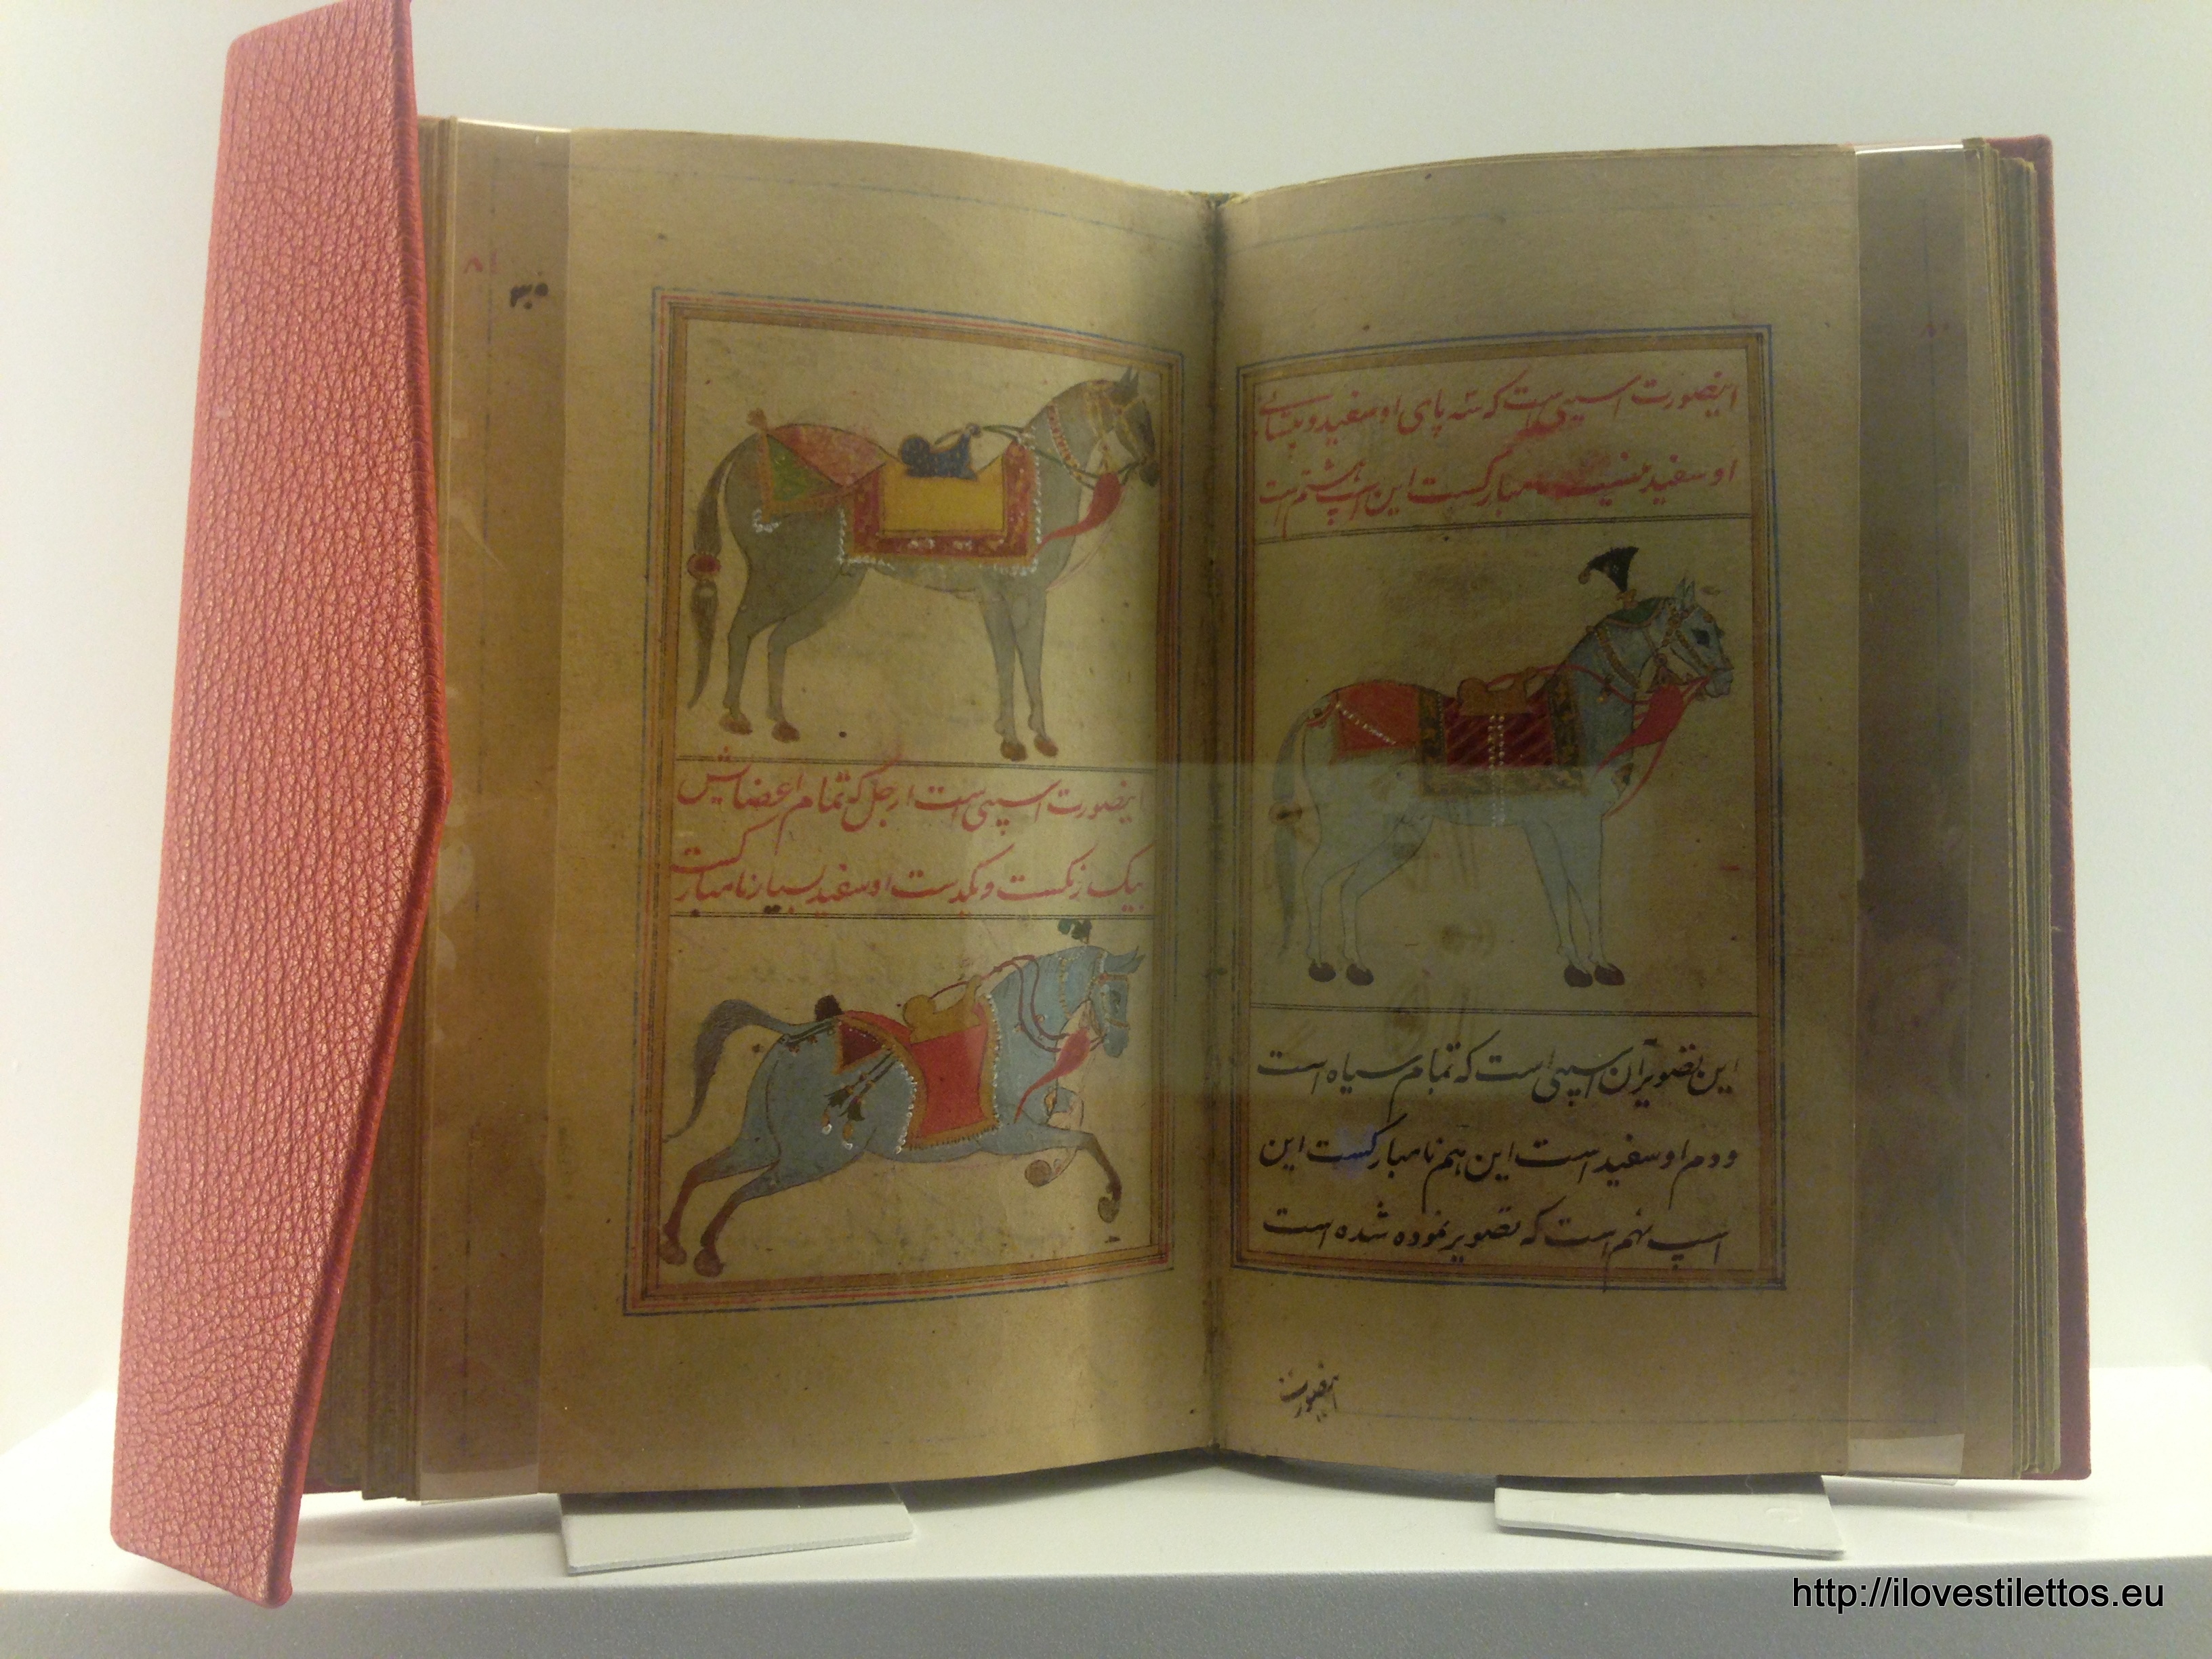 ۸۰
اینصورت اسپی است که سه پای او سفید و پیشانے
او سفید نیست نامبارکست این اسپ هشتم است
این تصویر آن اسپی است که تمام سیاه است
و دم او سفید است این هم نامبارکست این
اسپ نهم است که تصویر نموده شده است
اینصورت
۸۱
۳۰
اینصورت اسپی است ارجل که تمام اعضایش
بیک رنگست و یکدست او سفید بسیار نامبارکست
http://ilovestilettos.eu